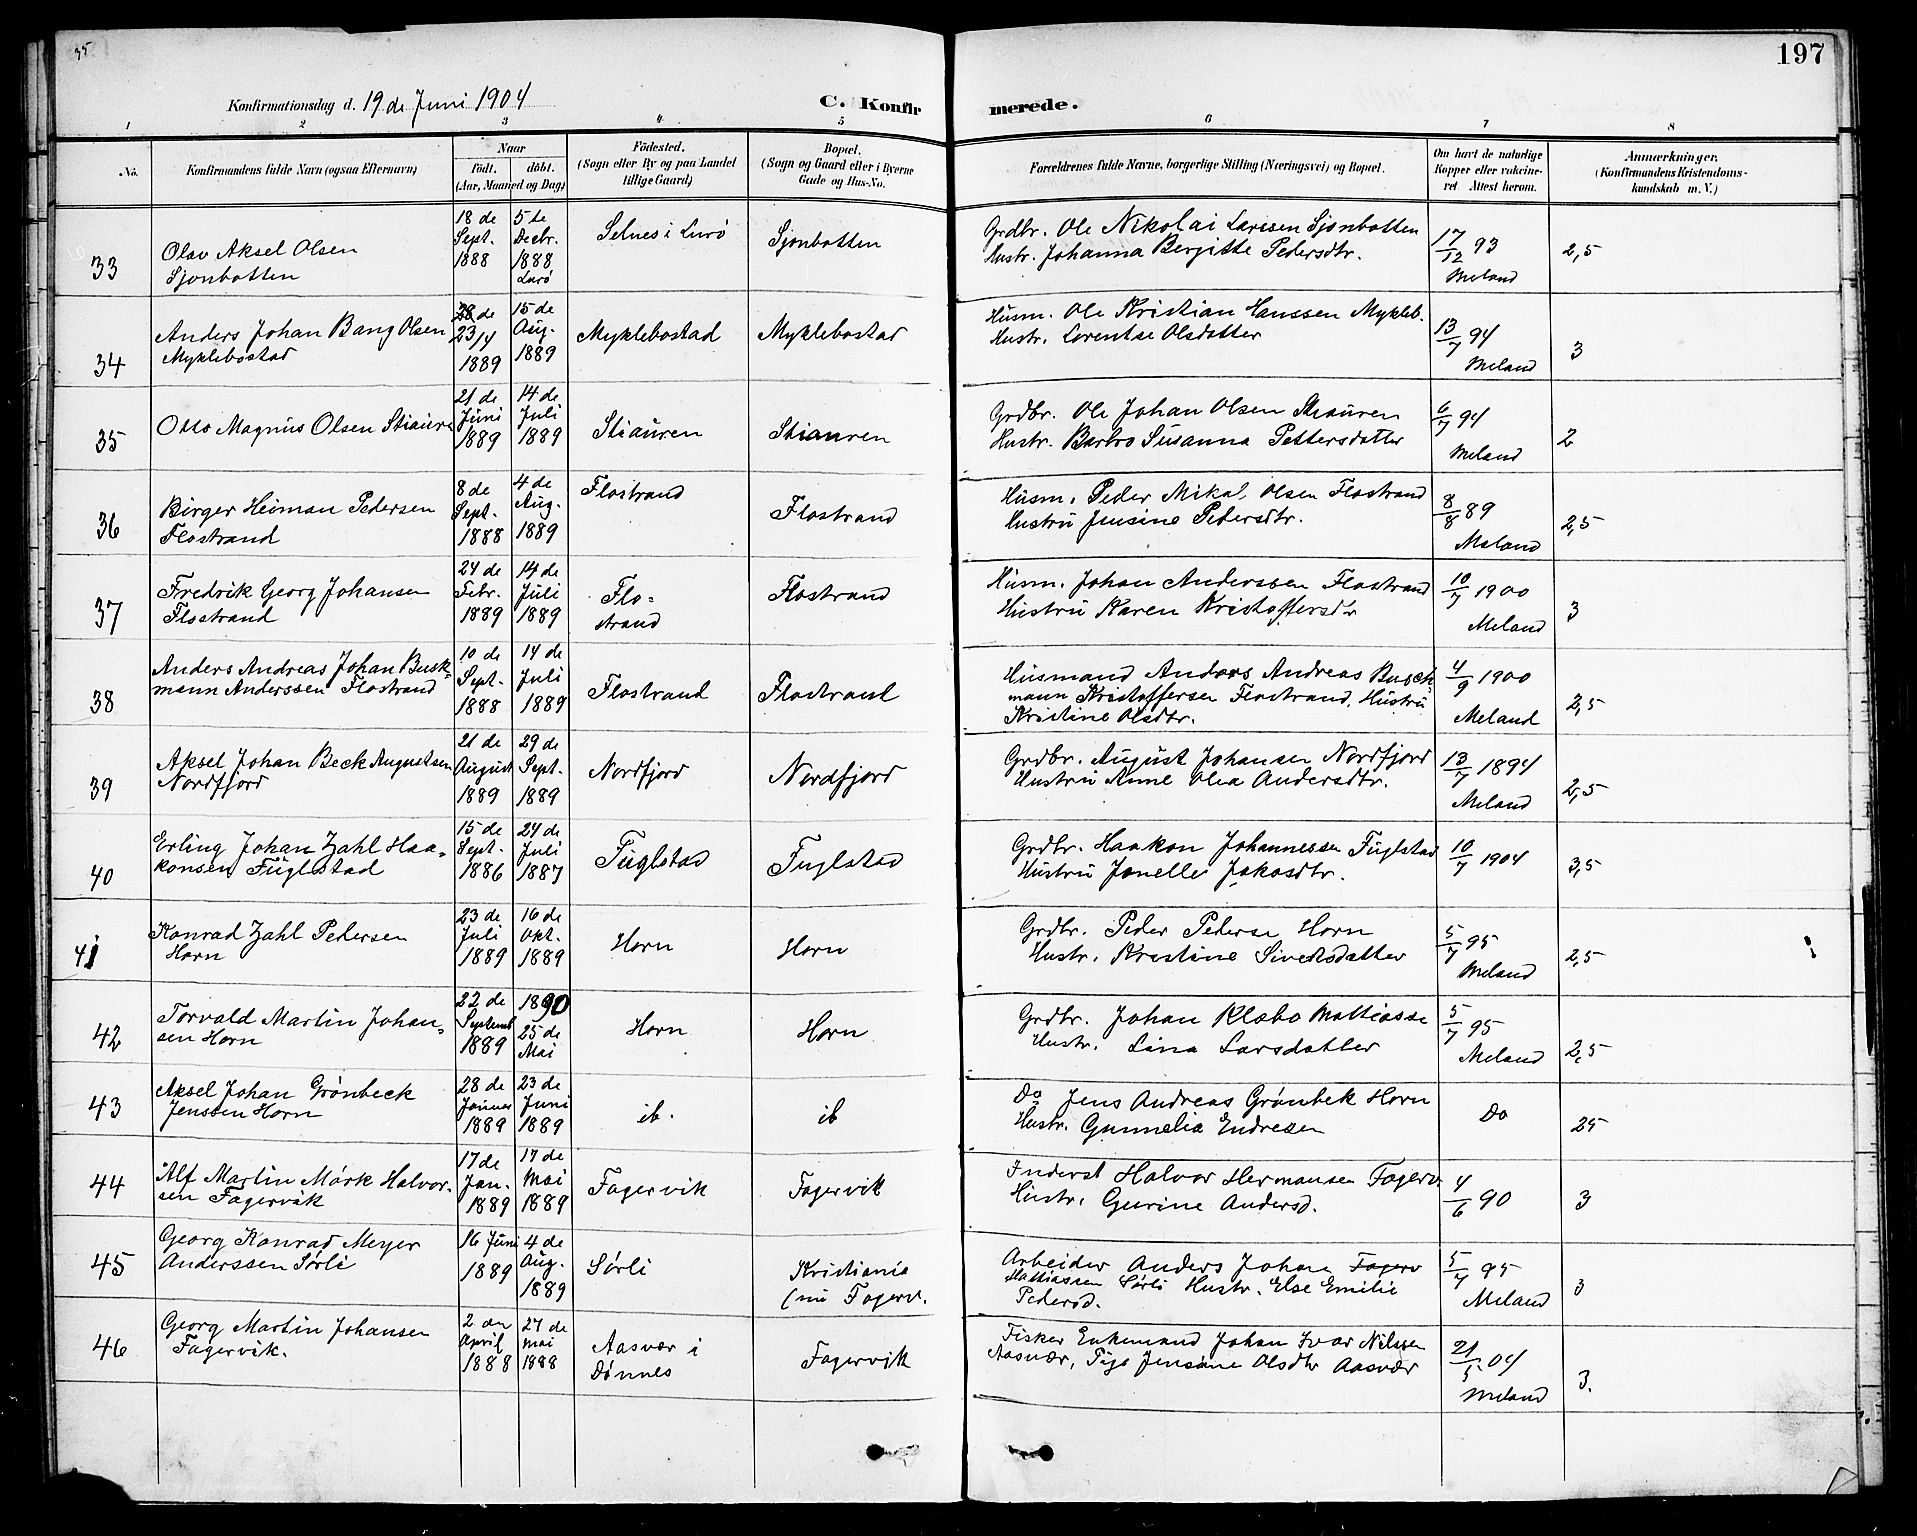 35
197
Konfirmationsdag d. 19 de Juni 1904
C. Konfir
merede.
1 2 3 4 5 6 7 8
No.
Konfirmandens fulde Navn (ogsaa Efternavn)
Naar
födt. döbt.
(Aar, Maaned og Dag)
Födested.
(Sogn eller By og paa Landet
tillige Gaard)
Bopæl.
(Sogn og Gaard eller i Byerne
Gade og Hus-No.
Forældrenes fulde Navne, borgerlige Stilling (Næringsvei) og Bopæl.
Om havt de naturlige
Kopper eller vakcine-
ret Attest herom.
Anmærkninger.
(Konfirmandens Kristendoms-
kundskab m. V.)
33
Olav Aksel Olsen
Sjonbotten
18 de
Sept.
1888
5 te
Decbr.
1888
Lurø
Selnes i Lurø
Sjonbotten
Grdbr. Ole Nikolai Larssen Sjonbotten
Hustr. Johanna Bergitte Pedersdtr.
17/12 93
Meland
2,5
34
Anders Johan Bang Olsen
Myklebostad
28 de
23/4
1889
15 de
Aug.
1889
Myklebostad
Myklebostad
Husm. Ole Kristian Hanssen Mykleb.
Hustr. Lorentse Olsdatter
13/7 94
Meland
3
35
Otto Magnus Olsen Stiaure
21 de
Juni
1889
14 de
Juli
1889
Stiauren
Stiauren
Grdbr. Ole Johan Olsen Stiauren
Hustr. Barbro Susanna Pettersdatter
6/7 94
Meland
2
36
Birger Heiman Pedersen
Flostrand
8 de
Sept.
1888
4 de
Aug.
1889
Flostrand
Flostrand
Husm. Peder Mikal Olsen Flostrand
Hustru Jensine Pedersdtr.
8/8 89
Meland
2,5
37
Fredrik Georg Johansen
Flostrand
24 de
Febr.
1889
14 de
Juli
1889
Flo-
strand
Flostrand
Husm. Johan Anderssen Flostrand
Hustru Karen Kristoffersdtr
10/7 1900
Meland
3
38
Anders Andreas Johan Busk-
mann Anderssen Flostrand
10 de
Sept.
1888
14 de
Juli
1889
Flostrand
Flostrand
Husmand Anders Andreas Busch
mann Kristoffersen Flostrand, Hustru
Kristine Olsdtr.
4/9 1900
Meland
2,5
39
Aksel Johan Beck Augustsen
Nordfjord
21 de
August
1889
29 de
Sept.
1889
Nordfjord
Nordfjord
Grdbr. August Johansen Nordfjord
Hustru Anne Olea Andersdtr.
13/7 1894
Meland
2,5
40
Erling Johan Zahl Haa-
konsen Fuglstad
15 de
Sept.
1886
24 de
Juli
1887
Fuglstad
Fuglstad
Grdbr. Haakon Johannessen Fuglstad
Hustru Jonelle Jakosdtr.
10/7 1904
3,5
41
Konrad Zahl Pedersen
Horn
23 de
Juli
1889
16 de
Okt.
1889
Horn
Horn
Grdbr. Peder Peders Horn
Hustr. Kristine Sivertsdatter
5/7 95
Meland
2,5
42
Torvald Martin Johan-
sen Horn
22 de
Septemb
1889
1890
25 de
Mai
Horn
Horn
Grdbr. Johan Klabo Mattiasse
Hustr. Lina Larsdatter
5/7 95
Meland
2,5
43
Aksel Johan Grønbeck
Jenssen Horn
28 de
Januar
1889
23 de
Juni
1889
ib.
ib
Do Jens Andreas Grønbek Horn
Hustr. Gunnelia Endresen
Do
25
44
Alf Martin Mørk Halvor-
sen Fagervik
17 de
Jan.
1889
17 de
Mai
1889
Fagervik
Fagervik
Inderst Halvor Hermansen Fagerv
Hustr. Gurine Andersd.
4/6 90
3
45
Georg Konrad Meyer
Anderssen Sørli
16 Juni
1889
4 de
Aug.
1889
Sørli
Kristiania
(nu Fagerv.
Arbeider Anders Johan Fagerv
Mattiassen Sørli Hustr. Else Emilie
Pedersd.
5/7 95
Meland
3
46
Georg Martin Johansen
Fagervik.
2 den
April
1888
27 de
Mai
1888
Aasvær i
Dønnes
Fagervik
Fisker Enkemand Johan Ivar Nilssen
Aasvær, Pige Jensine Olsdtr Aasvær
21/5 04
Meland
3.